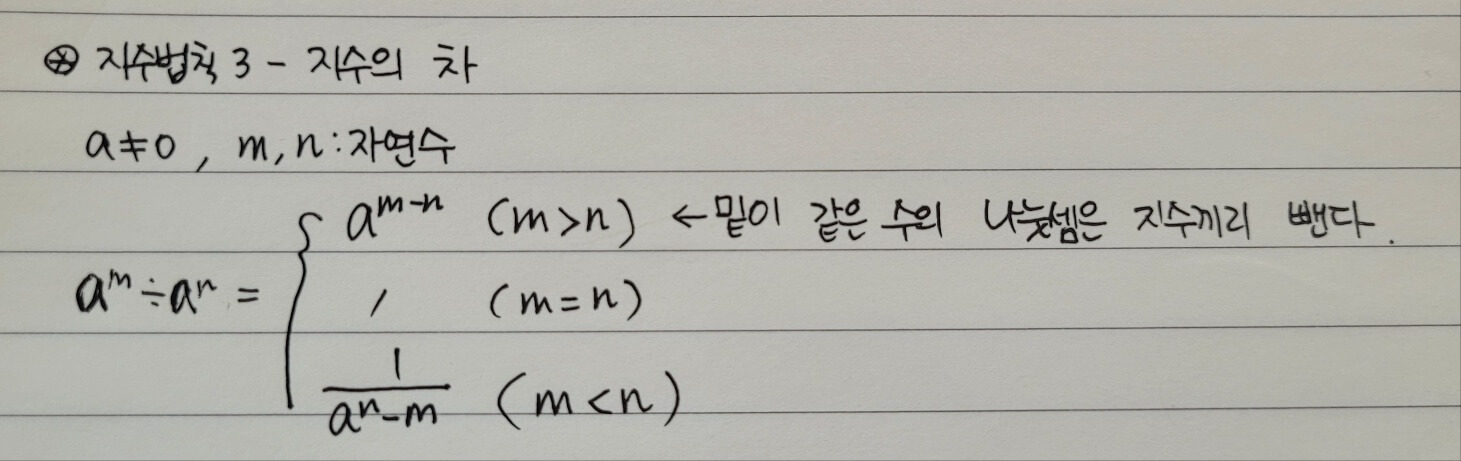 ⊛ 지수법칙 3 - 지수의 차
a≠0, m, n : 자연수
a^m ÷ a^n = { a^{m-n} (m>n) ← 밑이 같은 수의 나눗셈은 지수끼리 뺀다.
1 (m=n)
1/a^{n-m} (m<n)